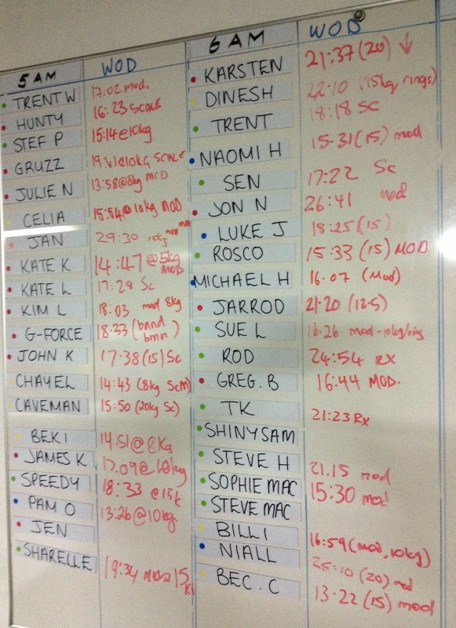 5 AM WOD
TRENT W 17.02 mod.
HUNTY 16:23 SCALE
STEF P 15:14@10kg
GRUZZ 10kg SCALE
JULIE N 13:58@8kg MOD
CELIA 15:54@10kg MOD
JAN 29:30
KATE K 14:47@5kg MOD
KATE L 17:28 Sc
KIM L 18:03 mod 8kg
G-FORCE 18:33
JOHN K 17:38(15) Sc
CHAYEL 14:43 (8kg Scm)
CAVEMAN 15:50 (20kg Sc)
BEKI 14.51@8kg
JAMES K 17.09@10kg
SPEEDY 18:33 @15k
PAM O 13:26@10kg.
JEN
SHARELLE 19:34
6 AM WOD
KARSTEN 21:37(20)
DINESH 22:10 (15kg rings)
TRENT 18:18 SC
NAOMI H 15.31(15) mod
SEN 17:22 Sc
JON N 26:41 mod
LUKE J 18:25(15)
ROSCO 15:33 (15) MOD
MICHAEL H 16.07 (Mod)
JARROD 21:20 (12.5)
SUE L 16:26
ROD 24:54 RX
GREG. B 16:44 MOD.
TK 21:23 Rx
SHINYSAM
STEVE H 21.15 mod
SOPHIE MAC 15:30 mod
STEVE MAC
BILLI 16:59 (mod, 10kg)
NIALL 25:10 (20) md
BEC. C 13:22 (15) mod